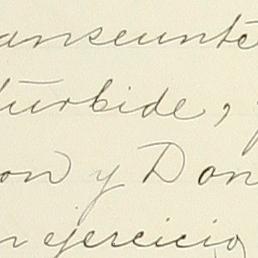 anseunte
turbide,
on y Don
n ejercicio